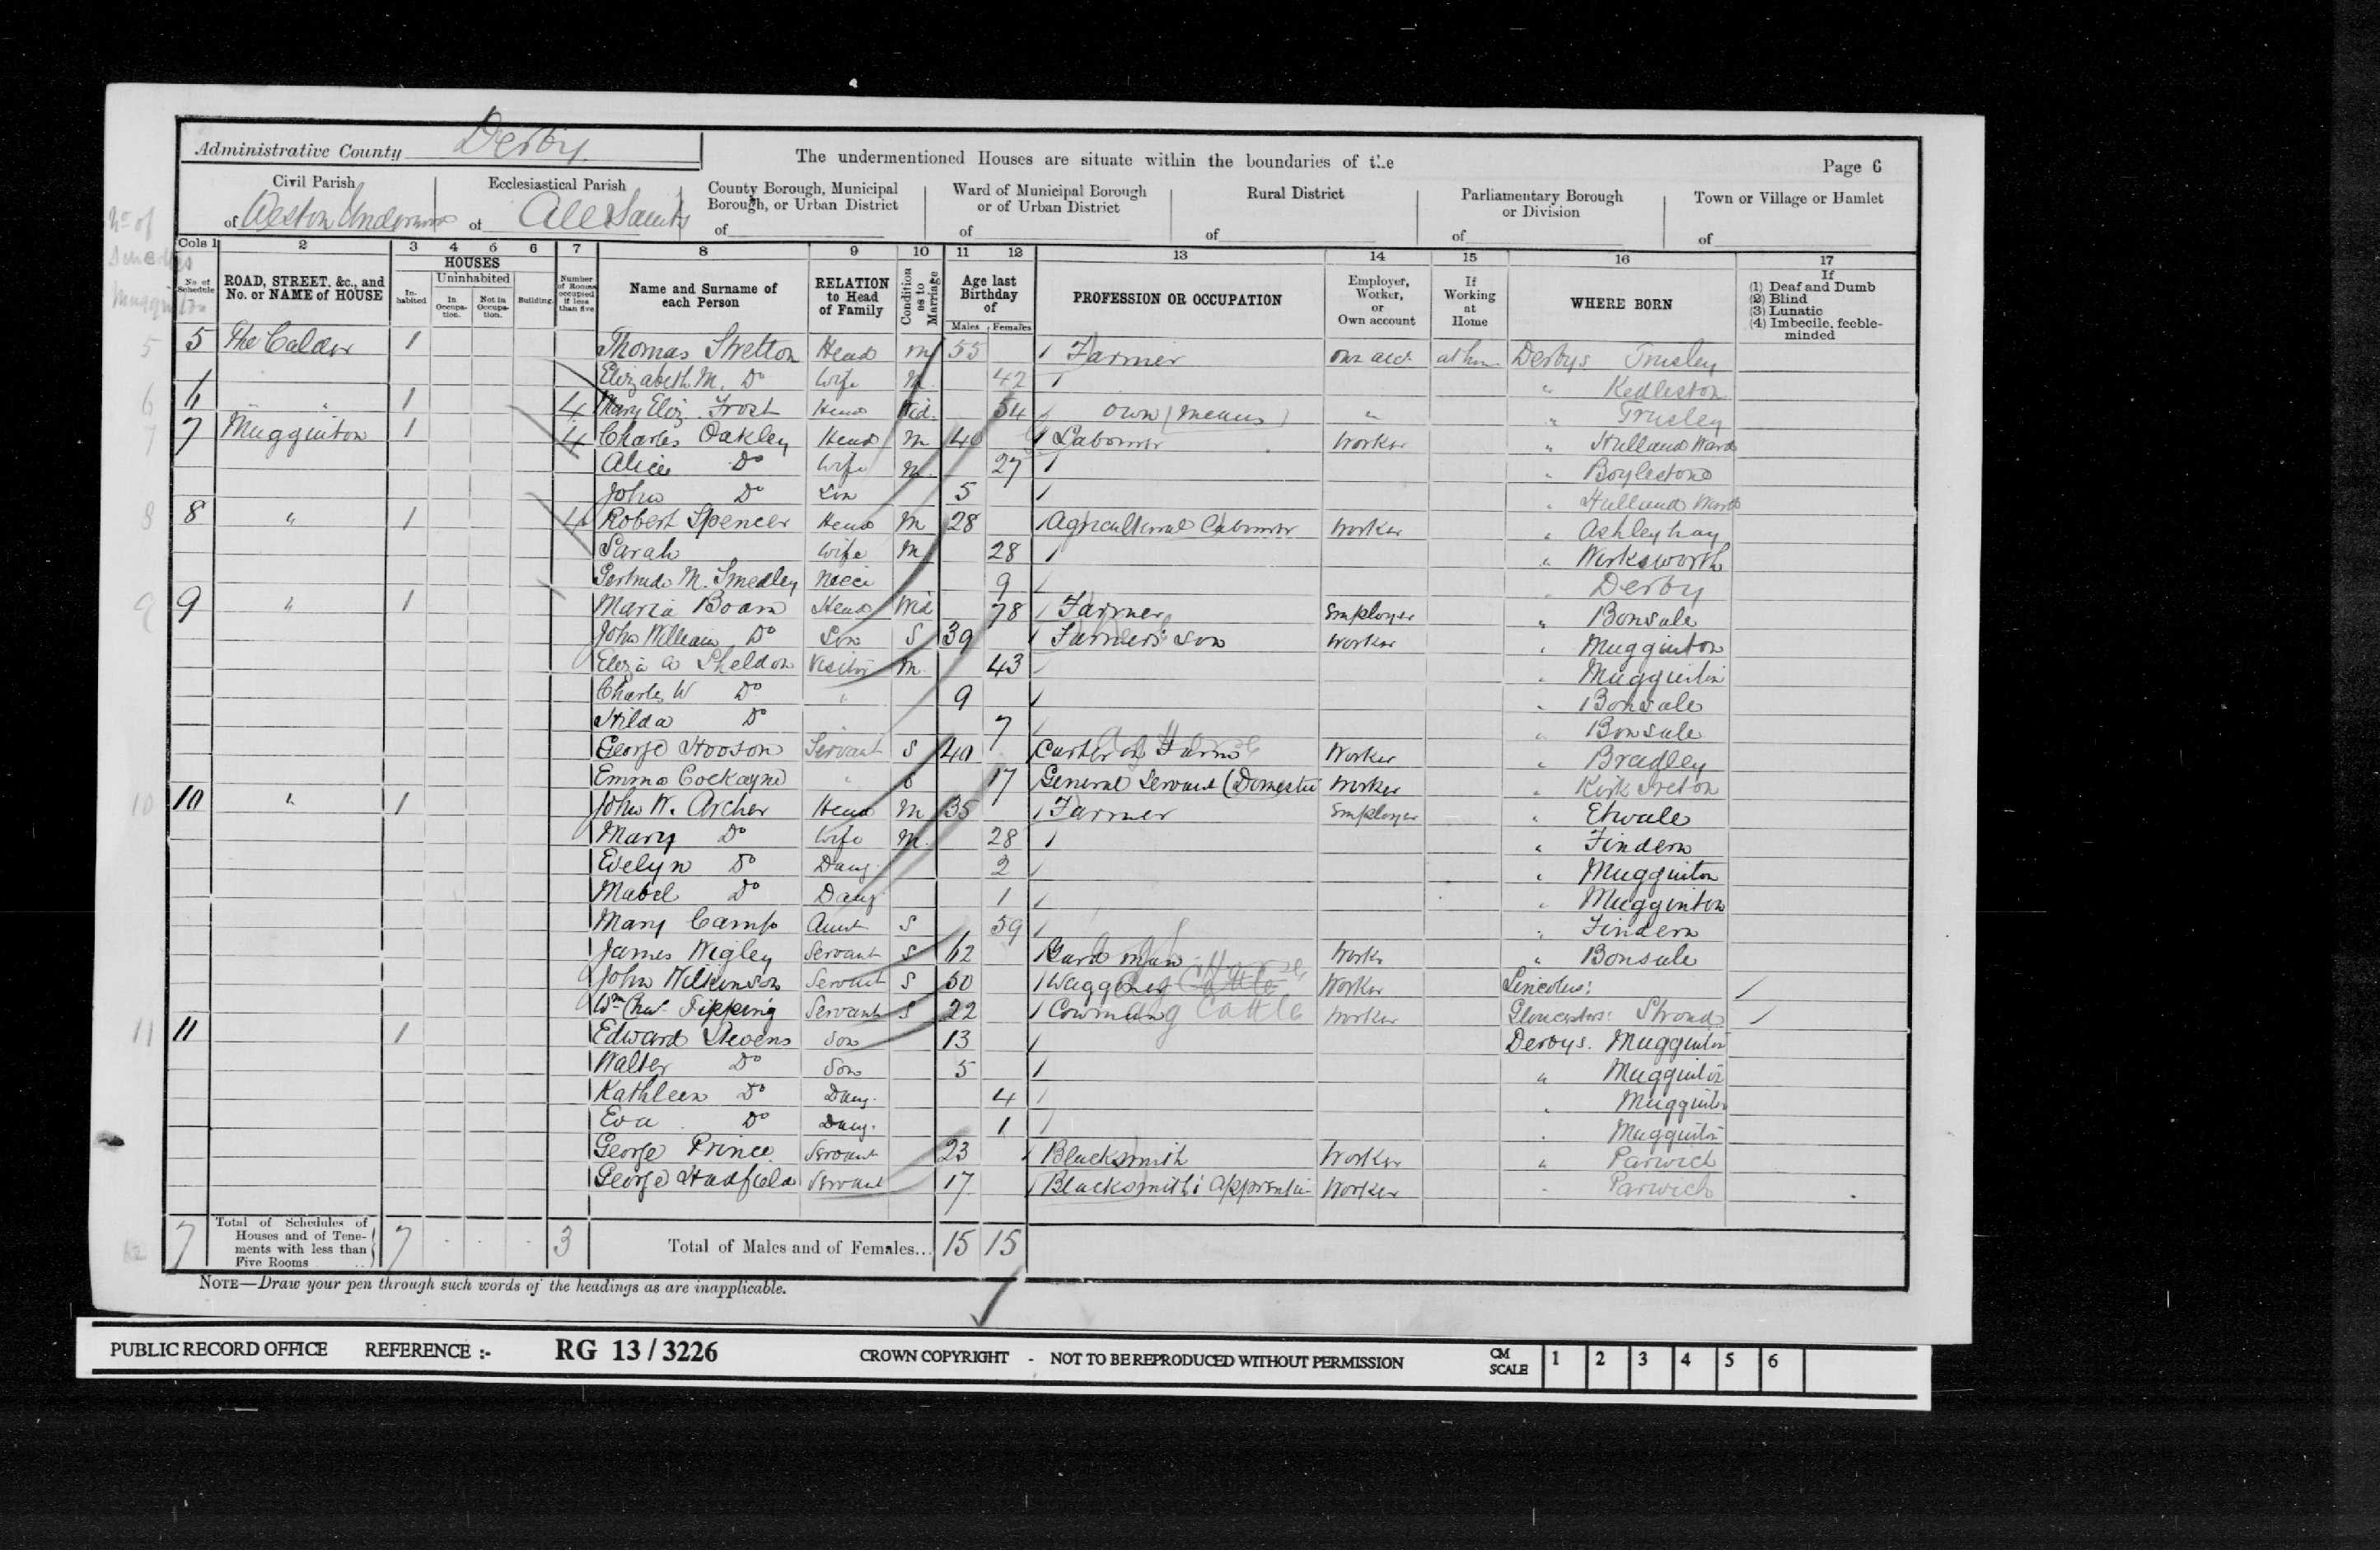 Administrative County Derby
The undermentioned Houses are situate within the boundaries of the
Page 6
Civil Parish
of Weston Underwood
Ecclesiastical Parish
of All Saints
County Borough, Municipal
Borough, or Urban District
of
Ward of Municipal Borough
or of Urban District
of
Rural District
of
Parliamentary Borough
or Division
of
Town or Village or Hamlet
of
Cols 1 2 3 4 5 6 7 8 9 10 11 12 13 14 15 16 17
No. of Schedule
ROAD, STREET, &c., and
No. or NAME of HOUSE
HOUSES
Inhabited
Uninhabited
In Occupation.
Not in Occupation.
Building
Number of Rooms occupied if less than five
Name and Surname of
each Person
RELATION
to Head
of Family
Condition as to Marriage
Age last
Birthday
of
Males Females
PROFESSION OR OCCUPATION
Employer,
Worker,
or
Own account
If
Working
at
Home
WHERE BORN
If
(1) Deaf and Dumb
(2) Blind
(3) Lunatic
(4) Imbecile, feeble-
minded
5 The 1 Thomas Stretton Head M 55 Farmer own acc. at hm Derbys Trusley
Elizabeth M. Do Wife M 42 " Kedleston
6 " 1 4 Mary Eliz. Frost Head Wid. 54 Own (means) " " Trusley
7 Mugginton 1 4 Charles Oakley Head M 40 Labourer Worker " Hulland Ward
Alice Do Wife M 27 " Boylestone
John Do Son 5 " Hulland Ward
8 " 1 4 Robert Spencer Head M 28 Agricultural Labourer Worker " Ashleyhay
Sarah Wife M 28 " Wirksworth
Gertrude M. Smedley Niece 9 " Derby
9 " 1 Maria Boam Head Wid 78 Farmer Employer " Bonsale
John William Do Son S 39 Farmers son Worker " Mugginton
Eliza A Sheldon Visitor M 43 " Mugginton
Charles W Do " 9 " Bonsale
Hilda Do 7 " Bonsale
George Hooson Servant S 40 Carter on Farm Worker " Bradley
Emma Cockayne " S 17 General Servant (Domestic Worker " Kirk Ireton
10 " 1 John W. Archer Head M 35 Farmer Employer " Etwale
Mary Do Wife M 28 " Findern
Evelyn Do Daug. 2 " Mugginton
Mabel Do Daug 1 " Mugginton
Mary Camp Aunt S 59 " Findern
James Wigley Servant S 62 Yard man Worker " Bonsale
John Wilkinson Servant S 60 Worker Lincolns:
Wm Chas. Tipping Servant S 22 Cowman ag Cattle Worker Gloucesters: Stroud
11 1 Edward Stevens Son 13 Derbys. Mugginton
Walter Do Son 5 " Mugginton
Kathleen Do Daug. 4 " Mugginton
Eva Do Daug. 1 " Mugginton
George Prince Servant 23 Blacksmith Worker " Parwich
George Hadfield Servant 17 Blacksmiths Apprentice Worker " Parwich
7 Total of Schedules of
Houses and of Tene-
ments with less than
Five Rooms
7 3 Total of Males and of Females... 15 15
NOTE—Draw your pen through such words of the headings as are inapplicable.
PUBLIC RECORD OFFICE REFERENCE :- RG 13 / 3226 CROWN COPYRIGHT - NOT TO BE REPRODUCED WITHOUT PERMISSION CM SCALE 1 2 3 4 5 6